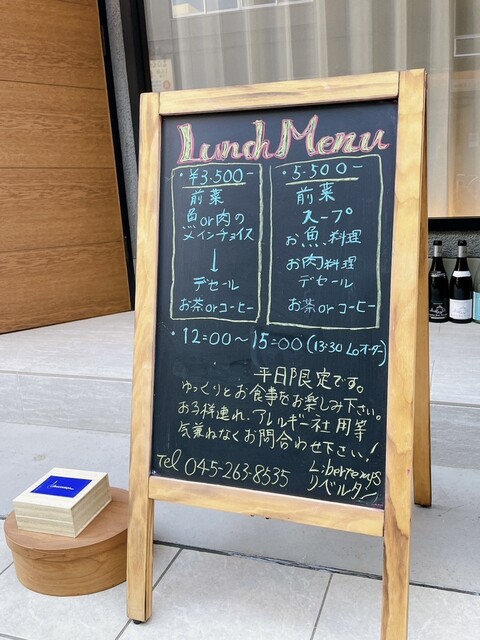 Lunch Menu
・¥3.500-
前菜
魚or肉の
メインチョイス
↓
デセール
お茶orコーヒー
・5.500-
前菜
スープ
お魚料理
お肉料理
デセール
お茶orコーヒー
・12:00〜15:00(13:30 Loオーダー)
平日限定です。
ゆっくりとお食事をお楽しみ下さい。
お子様連れ、アレルギー社用等
気兼ねなくお問合わせ下さい!
Tel 045-263-8535
リベルタン